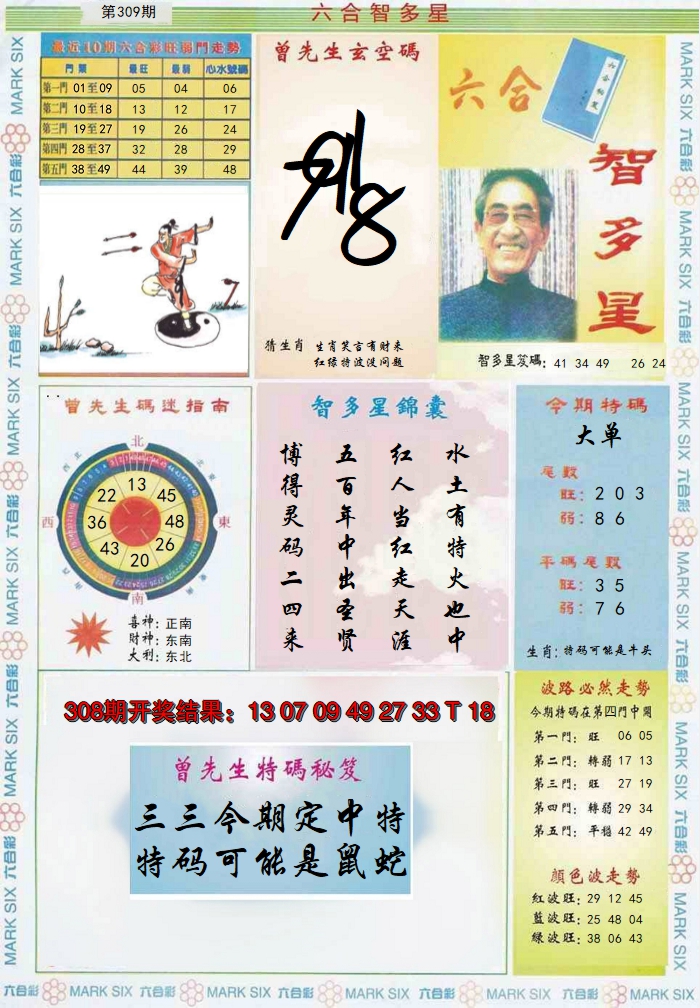 第309期
六合智多星
最近10期六合彩旺弱門走勢
門類 最旺 最弱 心水號碼
第一門 01至09 05 04 06
第二門 10至18 13 12 17
第三門 19至27 19 26 24
第四門 28至37 32 28 29
第五門 38至49 44 39 48
曾先生玄空碼
猜生肖 生肖笑言有财来
红绿特波没问题
六合
六合秘笈
智多星
智多星笈碼: 41 34 49 26 24
曾先生碼迷指南
北
西北
东北
西
東
西南
东南
南
13
45
48
26
20
43
36
22
喜神: 正南
财神: 东南
大利: 东北
智多星錦囊
水土有特火也中
红人当红走天涯
五百年中出圣贤
博得灵码二四来
今期特碼
大单
尾數
旺: 2 0 3
弱: 8 6
平碼尾數
旺: 3 5
弱: 7 6
生肖: 特码可能是牛头
308期开奖结果: 13 07 09 49 27 33 T 18
曾先生特碼秘笈
三三今期定中特
特码可能是鼠蛇
波路必然走勢
今期特碼在第四門中開
第一門: 旺 06 05
第二門: 轉弱 17 13
第三門: 旺 27 19
第四門: 轉弱 29 34
第五門: 平穩 42 49
顏色波走勢
紅波旺: 29 12 45
藍波旺: 25 48 04
綠波旺: 38 06 43
六合彩 MARK SIX 六合彩 MARK SIX 六合彩 MARK SIX 六合彩 MARK SIX 六合彩